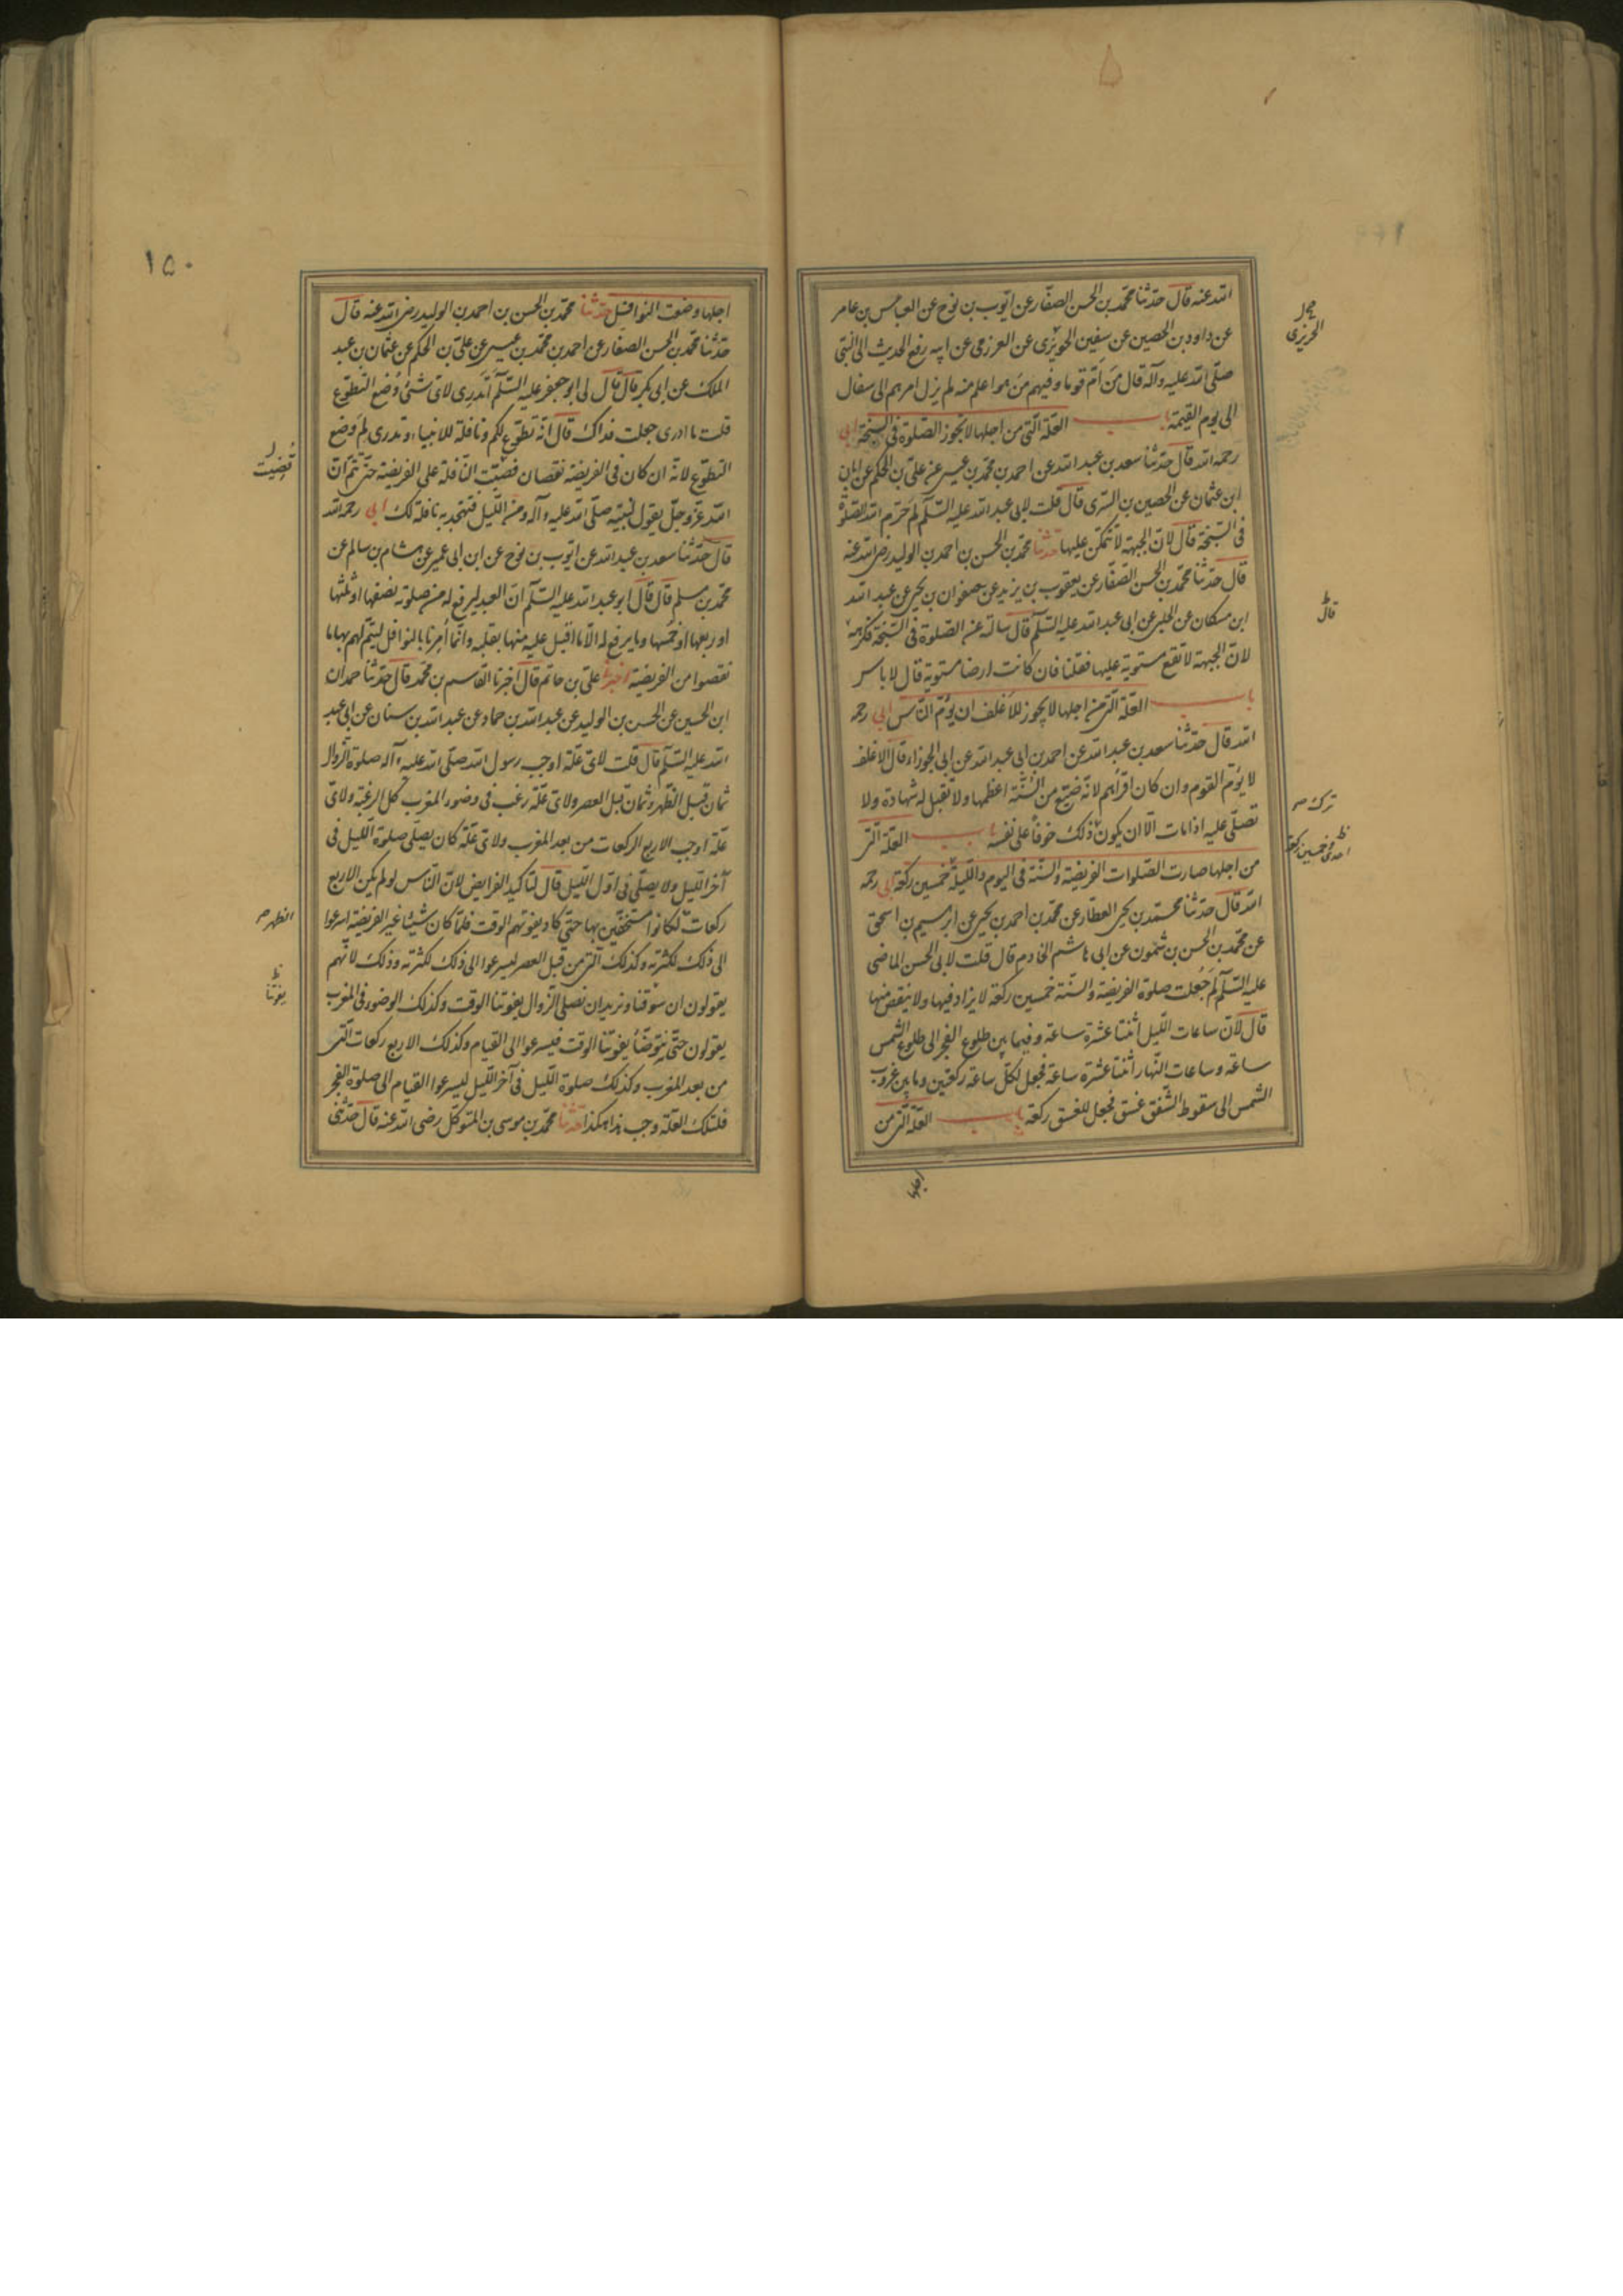 الله عنه قال حدّثنا محمّد بن الحسن الصفّار عن ايّوب بن نوح عن العباس بن عامر
عن داود بن الحصين عن سفين الحريزى عن العرزمى عن ابيه رفع الحديث الى النبى
صلّى الله عليه وآله قال مَن اَمّ قوما وفيهم مَن هو اعلم منه لم يزل امرهم الى سفال
الى يوم القيمة باب العلّة الّتى من اجلها لا تجوز الصّلوة فى السبخة ابى
رحمه الله قال حدّثنا سعد بن عبد الله عن احمد بن محمّد بن عيسى عن علىّ بن الحكم عن ابان
ابن عثمان عن الحصين بن السّرى قال قلت لابى عبد الله عليه السّلم لِمَ حَرّم الله الصّلوة
فى السّبخة قال لانّ الجبهة لا تتمكّن عليها حدّثنا محمّد بن الحسن بن احمد بن الوليد رضى الله عنه
قال حدّثنا محمّد بن الحسن الصّفّار عن يعقوب بن يزيد عن صفوان بن يحيى عن عبد الله
ابن مسكان عن الحلبى عن ابى عبد الله عليه السّلم قال سالته عن الصّلوة فى السّبخة فكرهه
لانّ الجبهة لا تقع مستوية عليها فقلنا فان كانت ارضا مستوية قال لا باس
باب العلّة الّتى من اجلها لا يجوز للاغلف ان يؤمّ النّاس ابى رحمه
الله قال حدّثنا سعد بن عبد الله عن احمد بن ابى عبد الله عن ابى الجوزاء قال الاغلف
لا يؤمّ القوم وان كان اقرأهم لانّه ضيّع من السُّنّة اعظمها ولا تقبل له شهادة ولا
تصلّى عليه اذا مات الّا ان يكون ذلك خوفاً على نفسه باب العلّة الّتى
من اجلها صارت الصّلوات الفريضة والسّنّة فى اليوم واللّيلة خمسين ركعة ابى رحمه
الله قال حدّثنا محمّد بن يحيى العطّار عن محمّد بن احمد بن يحيى عن ابرهيم بن اسحق
عن محمّد بن الحسن بن شمّون عن ابى هاشم الخادم قال قلت لابى الحسن الماضى
عليه السّلم لِمَ جُعلت صلوة الفريضة والسّنّة خمسين ركعة لا يزاد فيها ولا ينقص منها
قال لانّ ساعات اللّيل اثنتا عشرة ساعة وفيما بين طلوع الفجر الى طلوع الشّمس
ساعة وساعات النّهار اثنتا عشرة ساعة فجعل لكلّ ساعة ركعتين وما بين غروب
الشّمس الى سقوط الشّفق غسق فجعل للغسق ركعة باب العلّة الّتى من
اجلها
الحريزى
قال
ترك
احدى وخمسين ركعة
١٥٠
اجلها وضعت النوافل حدّثنا محمّد بن الحسن بن احمد بن الوليد رضى الله عنه قال
حدّثنا محمّد بن الحسن الصفّار عن احمد بن محمّد بن عيسى عن علىّ بن الحكم عن عثمان بن عبد
الملك عن ابى بكر قال قال لى ابو جعفر عليه السّلم أتدرى لاىّ شىء وُضع التّطوّع
قلت ما ادرى جعلت فداك قال انّه تطوّع لكم ونافلة للانبياء وتدرى لِمَ وضع
التطوّع لانّه ان كان فى الفريضة نقصان فضيّت النّافلة على الفريضة حتّى تتمّ انّ
الله عزّ وجلّ يقول لنبيّه صلّى الله عليه وآله ومن اللّيل فتهجّد به نافلة لك ابى رحمه الله
قال حدّثنا سعد بن عبد الله عن ايّوب بن نوح عن ابن ابى عمير عن هشام بن سالم عن
محمّد بن مسلم قال قال ابو عبد الله عليه السّلم انّ العبد ليرفع له من صلوته نصفها او ثلثها
او ربعها او خُمسها وما يرفع له الّا ما اقبل عليه منها بقلبه وانّما اُمِرنا بالنوافل ليتمّ لهم بها ما
نقصوا من الفريضة اخبرنا على بن حاتم قال اخبرنا القاسم بن محمّد قال حدّثنا حمدان
ابن الحسين عن الحسن بن الوليد عن عبد الله بن حماد عن عبد الله بن سنان عن ابى عبد
الله عليه السّلم قال قلت لاىّ علّة اوجب رسول الله صلّى الله عليه وآله صلوة الزّوال
ثمان قبل الظّهر وثمان قبل العصر ولاىّ علّة رغّب فى وضوء المغرب كلّ الرغبة ولاىّ
علّة اوجب الاربع الركعات من بعد المغرب ولاىّ علّة كان يصلّى صلوة اللّيل فى
آخر اللّيل ولا يصلّى فى اوّل اللّيل قال لتاكيد الفرايض لانّ النّاس لو لم يكن الا اربع
ركعات لكانوا مستخفّين بها حتّى كاد يفوتهم الوقت فلمّا كان شيئا غير الفريضة اسرعوا
الى ذلك لكثرته وكذلك الّتى من قبل العصر ليسرعوا الى ذلك لكثرته وذلك لانّهم
يقولون ان سوّفنا ونريد ان نصلّى الزّوال يفوتنا الوقت وكذلك الوضوء فى المغرب
يقولون حتّى نتوضّأ يفوتنا الوقت فيسرعوا الى القيام وكذلك الاربع ركعات الّتى
من بعد المغرب وكذلك صلوة اللّيل فى آخر اللّيل ليسرعوا القيام الى صلوة الفجر
فلتلك العلّة وجب هذا هكذا حدّثنا محمّد بن موسى بن المتوكّل رضى الله عنه قال حدّثنى
قُضيت
الظهر
يفوتنا